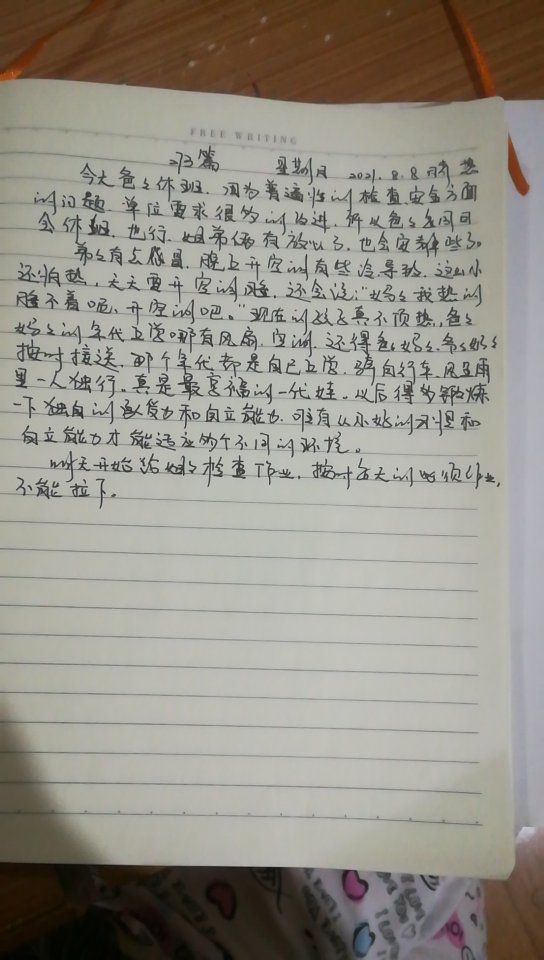 FREE WRITING
273篇 星期日 2021.8.8 晴 热
今天爸爸休班,因为普遍性的检查安全方面
的问题,单位要求很多的改进,所以爸爸周日
会休班,也行,姐弟俩有放心了,也会安静些了。
弟弟有点感冒,晚上开空调有些冷导致,这小
还怕热,天天要开空调睡,还会说:“妈妈我热的
睡不着呢,开空调吧。”现在的孩子真不顶热,爸爸
妈妈的年代上学哪有风扇,空调,还得爸爸妈妈,爷爷奶奶
按时接送,那个年代都是自己上学,骑自行车,风里雨
里一人独行。真是最幸福的一代娃。以后得多锻炼
一下独自的承受力和自立能力,唯有从小始的习惯和
自立能力才能适应多个不同的环境。
明天开始给姐姐检查作业,按时每天的必须作业,
不能拉下。